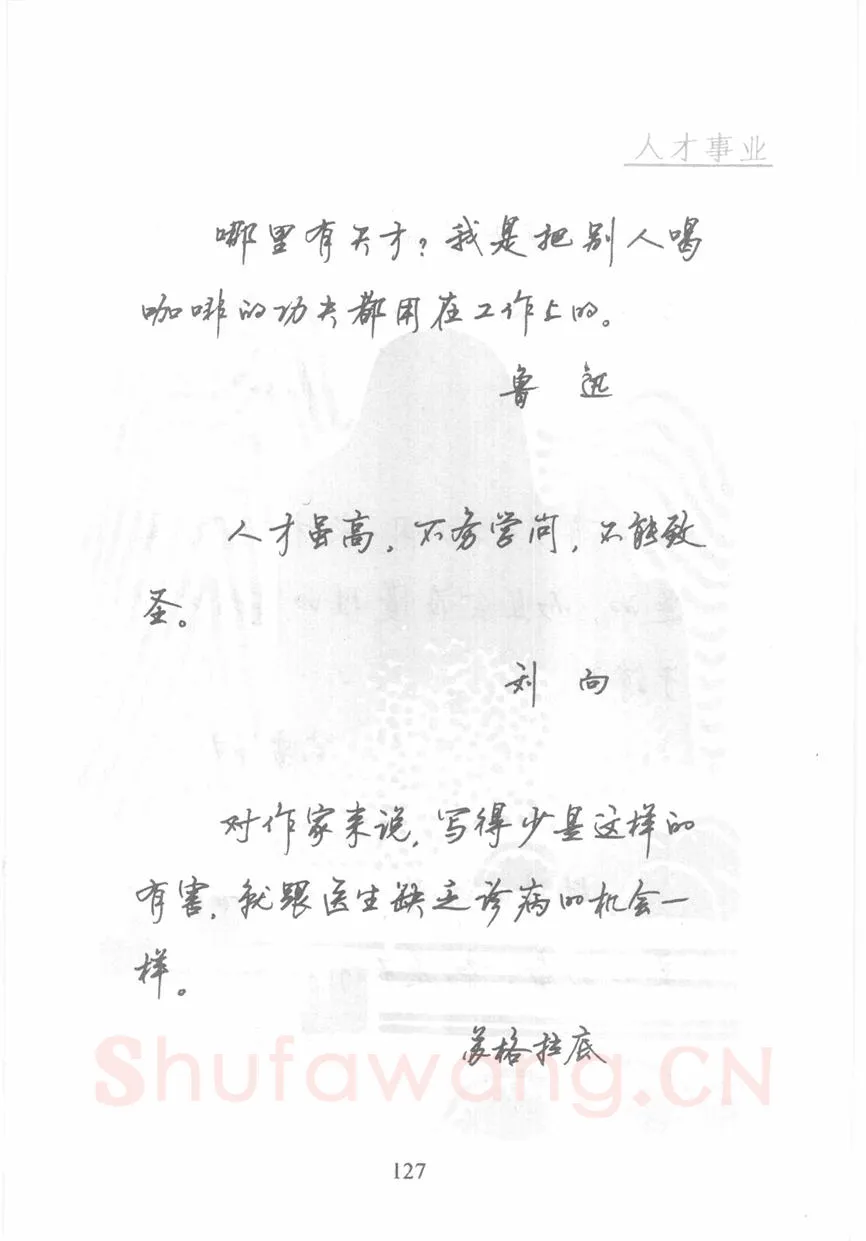 人才事业
哪里有天才？我是把别人喝
咖啡的功夫都用在工作上的。
鲁 迅
人才虽高，不务学问，不能致
圣。
刘 向
对作家来说，写得少是这样的
有害，就跟医生缺乏诊病的机会一
样。
苏格拉底
Shufawang.CN
127